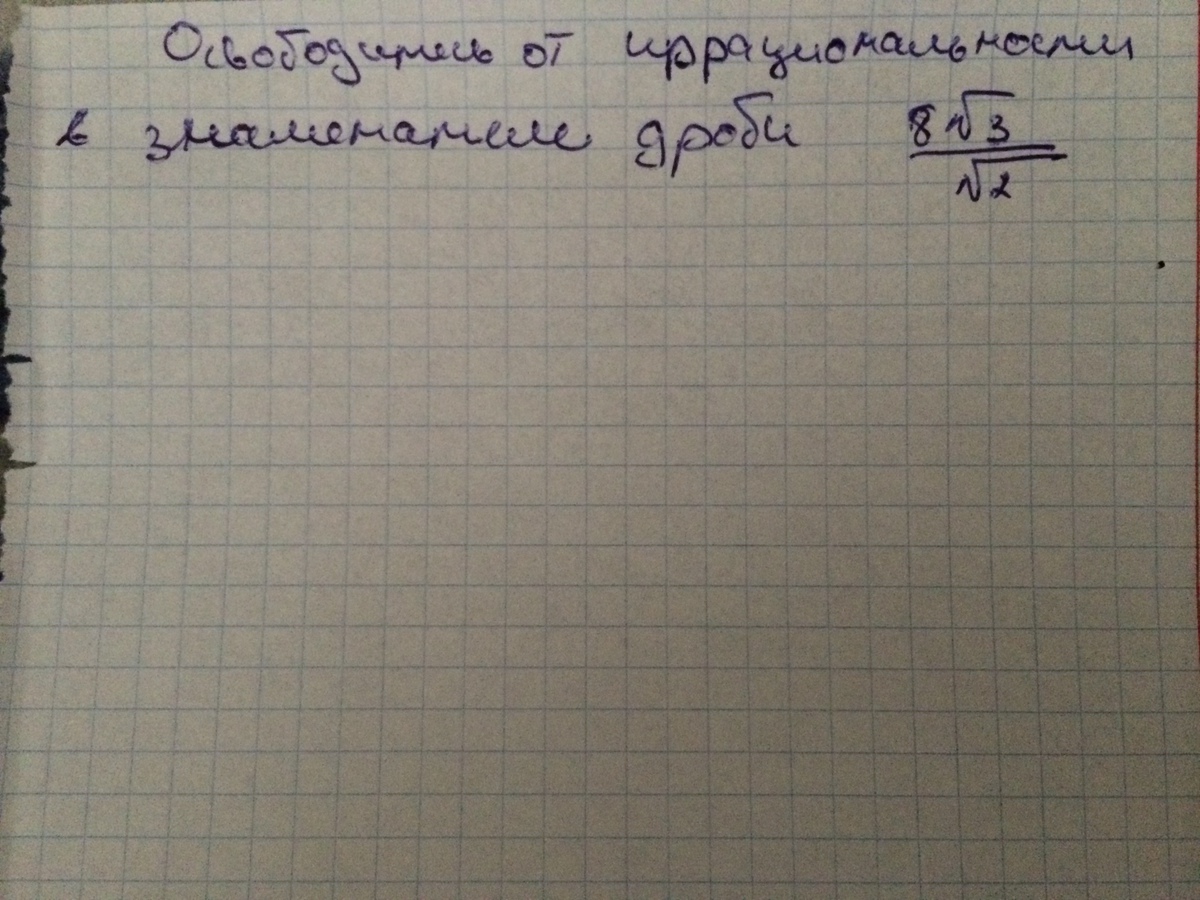 Освободитесь от иррациональности
в знаменателе дроби 8√3/√2